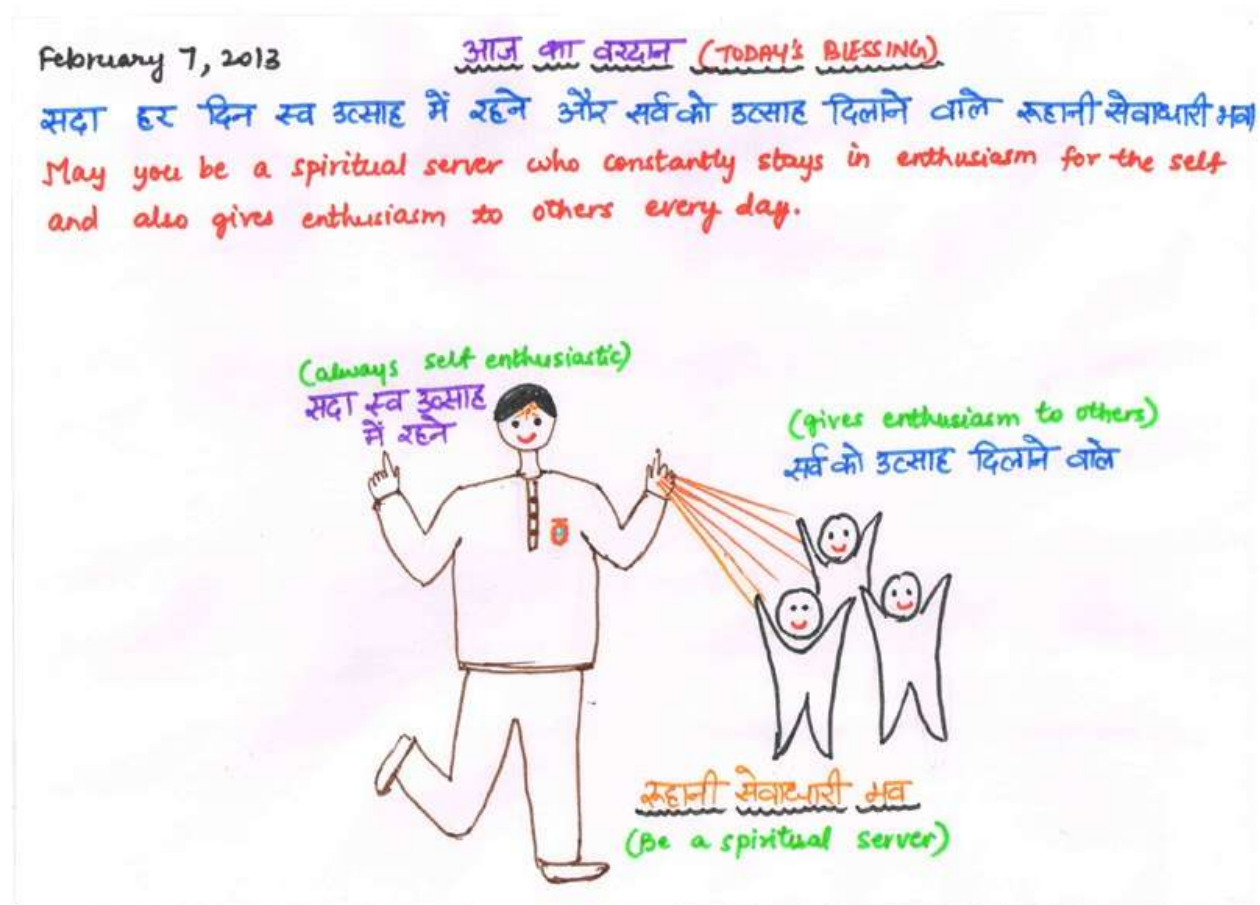 February 7, 2013
आज का वरदान (TODAY'S BLESSING)
सदा हर दिन स्व उत्साह में रहने और सर्व को उत्साह दिलाने वाले रूहानी सेवाधारी भव
May you be a spiritual server who constantly stays in enthusiasm for the self
and also gives enthusiasm to others every day.
(always self enthusiastic)
सदा स्व उत्साह
में रहने
(gives enthusiasm to others)
सर्व को उत्साह दिलाने वाले
रूहानी सेवाधारी भव
(Be a spiritual server)